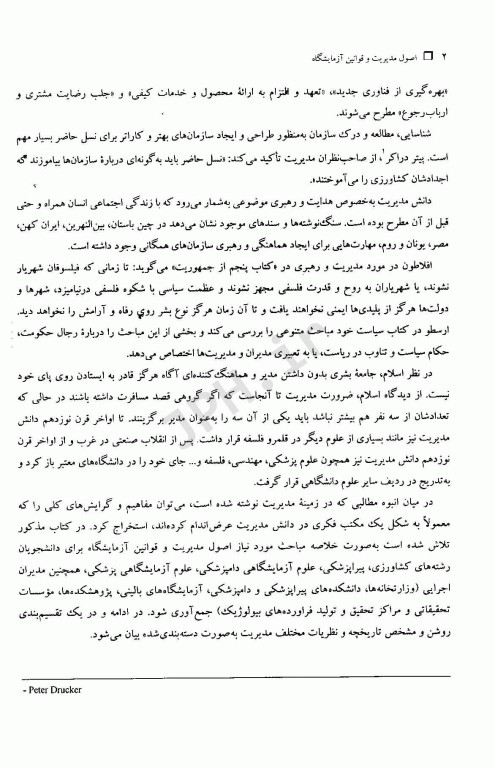 ۲ ❒ اصول مدیریت و قوانین آزمایشگاه
«بهره‌گیری از فناوری جدید»، «تعهد و التزام به ارائهٔ محصول و خدمات کیفی» و «جلب رضایت مشتری و
ارباب‌رجوع» مطرح می‌شوند.
شناسایی، مطالعه و درک سازمان به‌منظور طراحی و ایجاد سازمان‌های بهتر و کاراتر برای نسل حاضر بسیار مهم
است. پیتر دراکر¹، از صاحب‌نظران مدیریت تأکید می‌کند: «نسل حاضر باید به‌گونه‌ای دربارهٔ سازمان‌ها بیاموزند که
اجدادشان کشاورزی را می‌آموختند».
دانش مدیریت به‌خصوص هدایت و رهبری موضوعی به‌شمار می‌رود که با زندگی اجتماعی انسان همراه و حتی
قبل از آن مطرح بوده است. سنگ‌نوشته‌ها و سندهای موجود نشان می‌دهد در چین باستان، بین‌النهرین، ایران کهن،
مصر، یونان و روم، مهارت‌هایی برای ایجاد هماهنگی و رهبری سازمان‌های همگانی وجود داشته است.
افلاطون در مورد مدیریت و رهبری در «کتاب پنجم از جمهوریت» می‌گوید: تا زمانی که فیلسوفان شهریار
نشوند، یا شهریاران به روح و قدرت فلسفی مجهز نشوند و عظمت سیاسی با شکوه فلسفی درنیامیزد، شهرها و
دولت‌ها هرگز از پلیدی‌ها ایمنی نخواهند یافت و تا آن زمان هرگز نوع بشر روی رفاه و آرامش را نخواهد دید.
ارسطو در کتاب سیاست خود مباحث متنوعی را بررسی می‌کند و بخشی از این مباحث را دربارهٔ رجال حکومت،
حکام سیاست و تناوب در ریاست، یا به تعبیری مدیران و مدیریت‌ها اختصاص می‌دهد.
در نظر اسلام، جامعهٔ بشری بدون داشتن مدیر و هماهنگ‌کننده‌ای آگاه هرگز قادر به ایستادن روی پای خود
نیست. از دیدگاه اسلام، ضرورت مدیریت تا آنجاست که اگر گروهی قصد مسافرت داشته باشند در حالی که
تعدادشان از سه نفر هم بیشتر نباشد باید یکی از آن سه را به‌عنوان مدیر برگزینند. تا اواخر قرن نوزدهم دانش
مدیریت نیز مانند بسیاری از علوم دیگر در قلمرو فلسفه قرار داشت. پس از انقلاب صنعتی در غرب و از اواخر قرن
نوزدهم دانش مدیریت نیز همچون علوم پزشکی، مهندسی، فلسفه و... جای خود را در دانشگاه‌های معتبر باز کرد و
به‌تدریج در ردیف سایر علوم دانشگاهی قرار گرفت.
در میان انبوه مطالبی که در زمینهٔ مدیریت نوشته شده است، می‌توان مفاهیم و گرایش‌های کلی را که
معمولاً به شکل یک مکتب فکری در دانش مدیریت عرض‌اندام کرده‌اند، استخراج کرد. در کتاب مذکور
تلاش شده است به‌صورت خلاصه مباحث مورد نیاز اصول مدیریت و قوانین آزمایشگاه برای دانشجویان
رشته‌های کشاورزی، پیراپزشکی، علوم آزمایشگاهی دامپزشکی، علوم آزمایشگاهی پزشکی، همچنین مدیران
اجرایی (وزارتخانه‌ها، دانشکده‌های پیراپزشکی و دامپزشکی، آزمایشگاه‌های بالینی، پژوهشکده‌ها، مؤسسات
تحقیقاتی و مراکز تحقیق و تولید فراورده‌های بیولوژیک) جمع‌آوری شود. در ادامه و در یک تقسیم‌بندی
روشن و مشخص تاریخچه و نظریات مختلف مدیریت به‌صورت دسته‌بندی‌شده بیان می‌شود.
- Peter Drucker